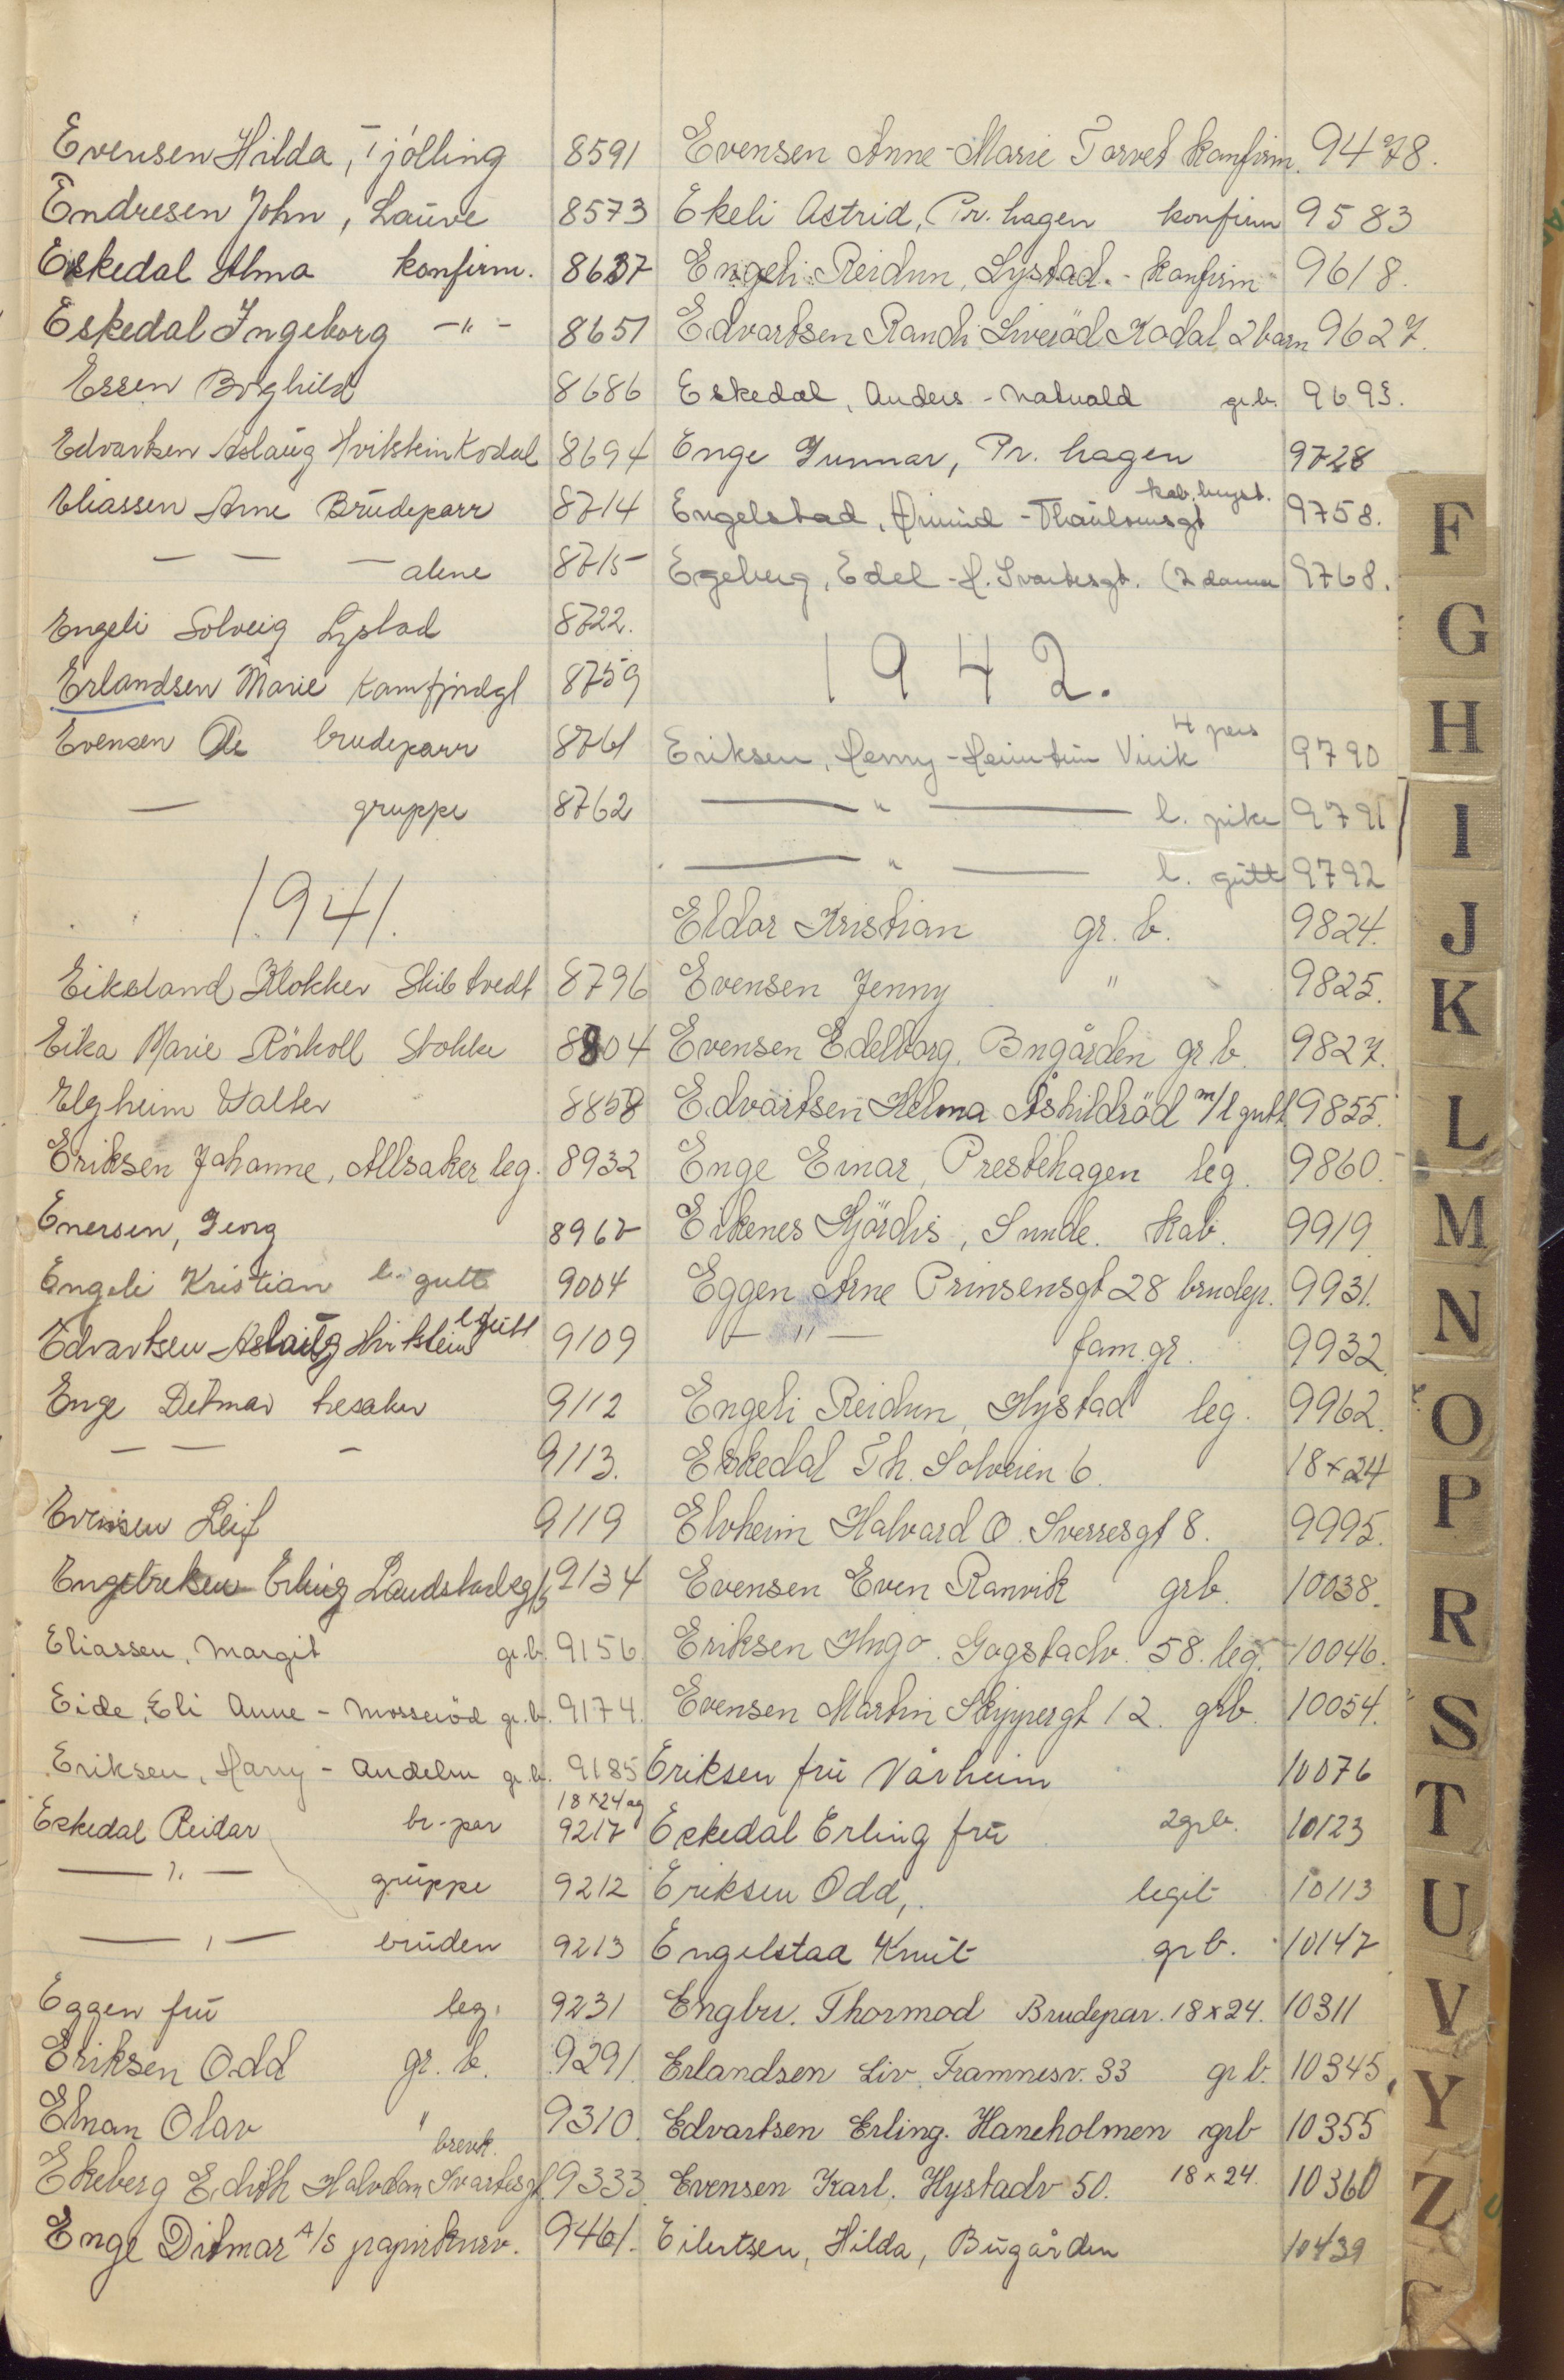 Evensen Hilda, Tjölling 8591
Endresen John, Lauve 8573
Eskedal Alma konfirm. 8637
Eskedal Ingeborg -"- 8651
Essen Borghild 8686
Edvartsen Aslaug Hvitstein Kodal 8694
Eliassen Arne Brudeparr 8714
— — — alene 8715
Engeli Solveig Lystad 8722.
Erlandsen Marie Kamfjordgt 8759
Evensen Ole brudeparr 8761
— gruppe 8762
1941.
Eikeland Klokker Skibtvedt 8796
Eika Marie Rörkoll Stokke 8804
Elgheim Walter 8858
Eriksen Johanne, Allsaker leg. 8932
Enersen, Georg 8962
Engeli Kristian l. gutt 9004
Edvartsen Aslaug Hvitstein l gutt 9109
Enge Ditmar 9112
— — — 9113.
Evensen Leif 9119
Engebretsen Erling Landstadsgt 9134
Eliassen, Margit gr.b. 9156
Eide, Eli Anne - Mosseröd gr.b. 9174.
Eriksen, Harry - gr.b. 9185
18×24
Eskedal Reidar br-par 9217
— " — gruppe 9212
— " — bruden 9213
Eggen fru leg. 9231
Eriksen Odd gr. b. 9291.
Elnan Olav " 9310.
brevk.
Ekeberg Edith Halvdan Svartesgt. 9333
Enge Ditmar A/S papirkurv. 9461.
Evensen Anne-Marie Torvet konfirm. 9478.
Ekeli Astrid, Pr. hagen konfirm 9583
Engeli Reidun, Lystad. - konfirm 9618.
Edvartsen Randi Liveröd Kodal 2 barn 9627.
Eskedal, Anders - Natvald gr.b. 9693.
Enge Gunnar, Pr. hagen 9728
kab. bryst.
Engelstad, Amund - Thaulowsgt 9758.
Egeberg, Edel - H. Svartesgt. (2 damer 9768.
1942.
4 pers
Eriksen, Henny - Heimtun Virik 9790
— " — l. pike 9791
— " — l. gutt 9792
Eldor Kristian gr. b. 9824.
Evensen Jenny " 9825.
Evensen Edelborg, Bugården gr b. 9827.
Edvartsen Helma Åshildröd m/l gutt 9855.
Enge Einar, Prestehagen leg. 9860.
Eikenes Hjördis, Sunde. kab. 9919.
Eggen Arne Prinsensgt 28 brudep. 9931.
— " — fam. gr. 9932.
Engeli Reidun, Hystad leg. 9962.
Eskedal Th. Solveien 6. 18×24
Elvheim Halvard O. Sverresgt 8. 9995.
Evensen Even Ranvik grb. 10038.
Eriksen Hugo. Gogstadv. 58. leg. 10046.
Evensen Martin Skippergt 12. grb. 10054.
Eriksen fru Vårheim 10076
Eskedal Erling fru 2 gr.b. 10123
Eriksen Odd, legit 10113
Engelstad Knut gr b. 10147
Engbr. Thormod Brudepar. 18×24. 10311
Erlandsen Liv. Framnesv. 33 gr b. 10345
Edvartsen Erling. Haneholmen grb 10355
Evensen Karl. Hystadv 50. 18×24. 10360
Eilertsen, Hilda, Bugården 10439
F
G
H
I
J
K
L
M
N
O
P
R
S
T
U
V
Y
Z